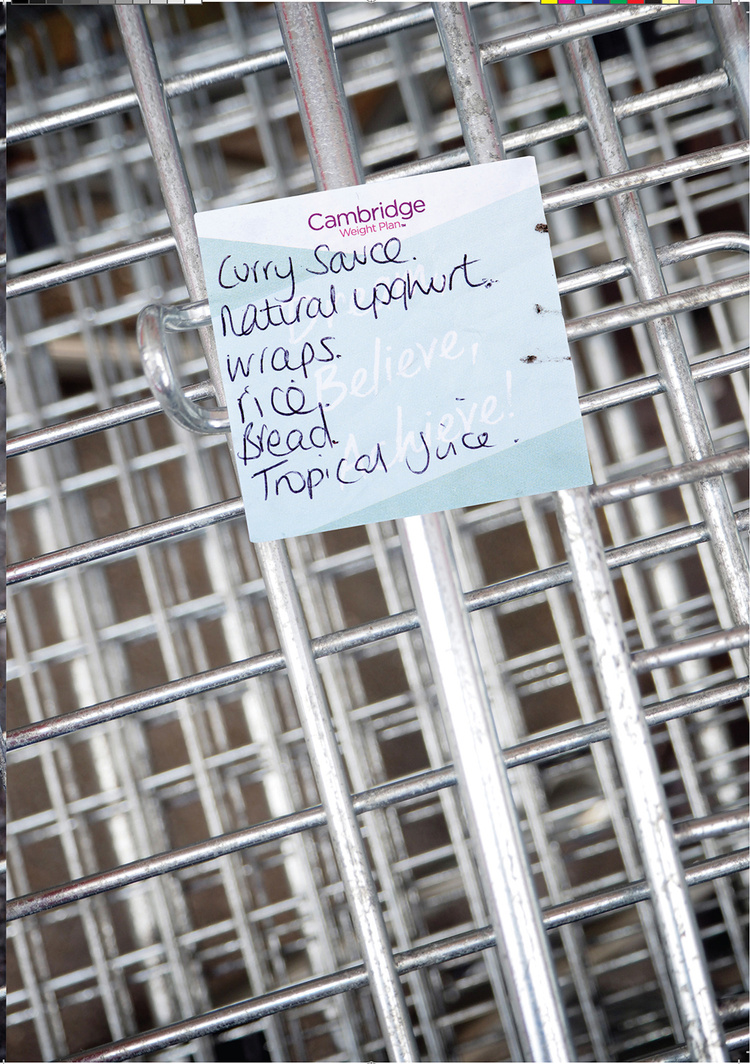 Cambridge
Weight Plan™
Curry Sauce.
Natural yoghurt.
wraps.
rice.
Bread.
Tropical Juice.
Dream,
Believe,
Achieve!